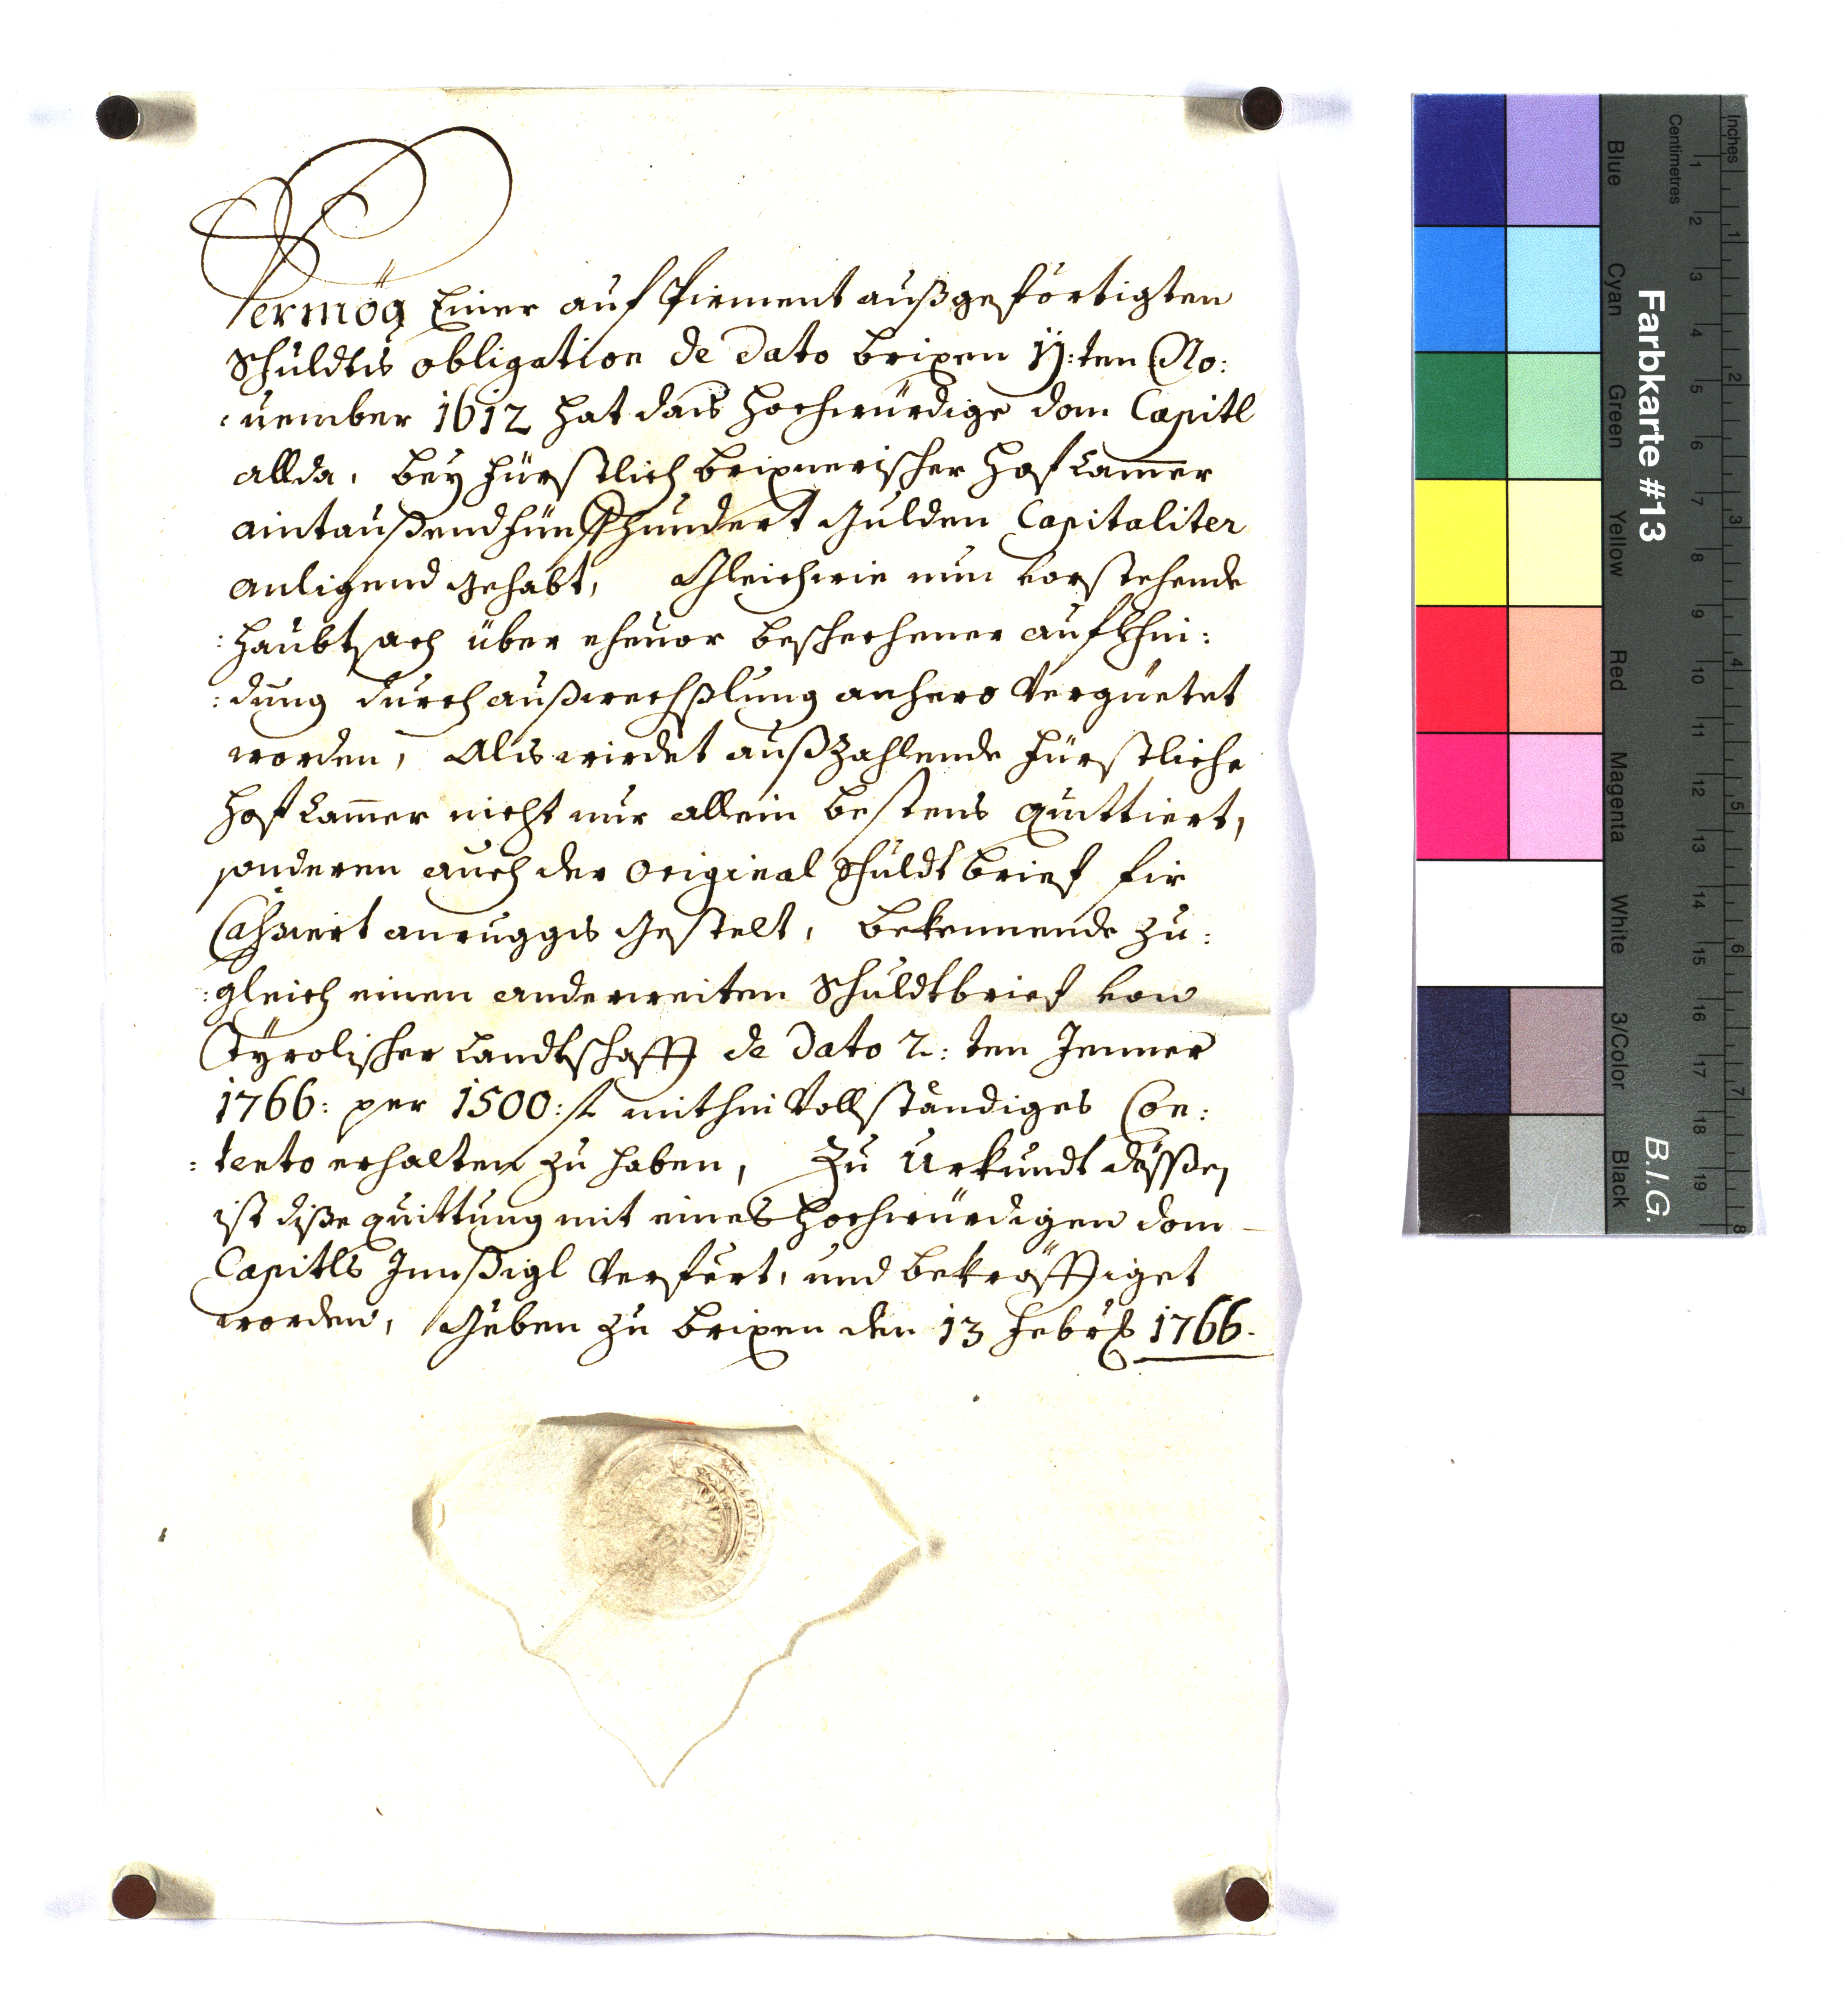 Vermög Einer auf Pirment außgeförtigten
Schuldts obligation de dato brixen 11:ten No:
:uember 1612 hat das Hochwürdige dom Capitl
allda, beÿ Fürstlich brixnerischer Hof Cam̄er
aintaußend fünfhundert Gulden Capitaliter
anligend gehabt, Gleichwie nun vorstehende
:haubtsach über eheuor beschechener aufkhin:
:dung durch außwechßlung anhero Vergüetet
worden, Als wirdet außzahlende Fürstliche
Hof Cam̄er nicht nur allein bestens quittiert,
sonderen auch der original Schuldt brief fir
Cahsiert anruggs gestelt, bekennende zu:
:gleich einen anderweiten Schuldtbrief von
Tÿrolischer Landtschafft de dato 2:ten Jenner
1766: per 1500: f mithin Vollständiges Con:
:tento erhalten zu haben, Zu Urkundt dessen
ist diße quittung mit eines Hochwürdigen dom
Capitls Innsßigl Verfert, und bekräfftiget
worden, Geben zu brixen den 13 Febr: 1766.
Farbkarte #13
B.I.G.
Inches 1 2 3 4 5 6 7 8
Centimetres 1 2 3 4 5 6 7 8 9 10 11 12 13 14 15 16 17 18 19
Blue Cyan Green Yellow Red Magenta White 3/Color Black